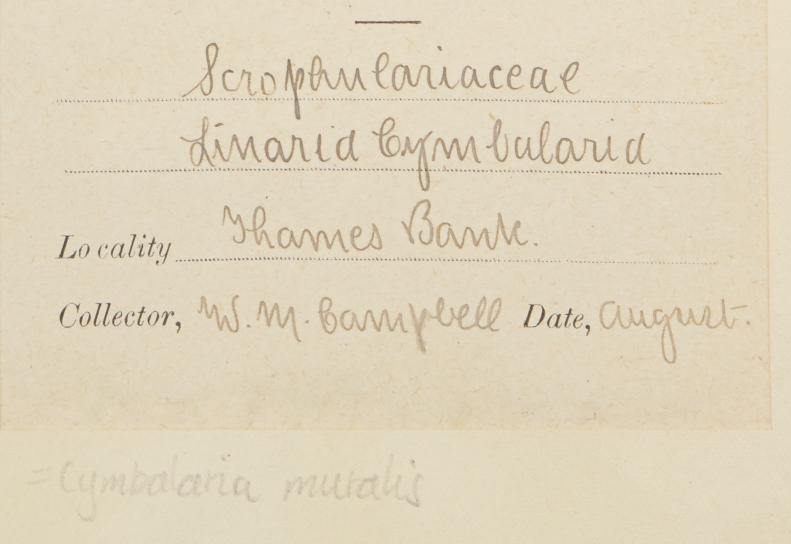 Scrophulariaceae
Linaria Cymbalaria
Locality Thames Bank.
Collector, W. M. Campbell Date, August.
= Cymbalaria muralis